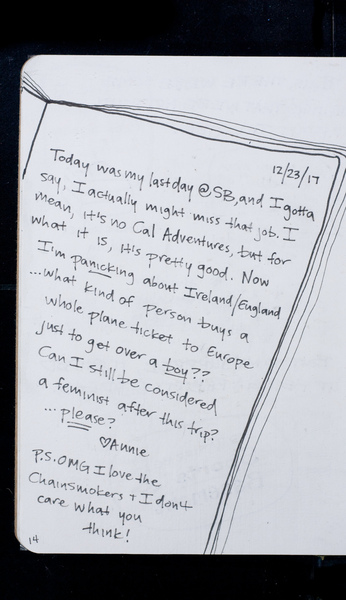 12/23/17
Today was my last day @SB, and I gotta
say, I actually might miss that job. I
mean, it's no Cal Adventures, but for
what it is, it's pretty good. Now
I'm panicking about Ireland/England
...what kind of person buys a
whole plane ticket to Europe
just to get over a boy??
Can I still be considered
a feminist after this trip?
...please?
♡Annie
P.S. OMG I love the
Chainsmokers + I don't
care what you
think!
14